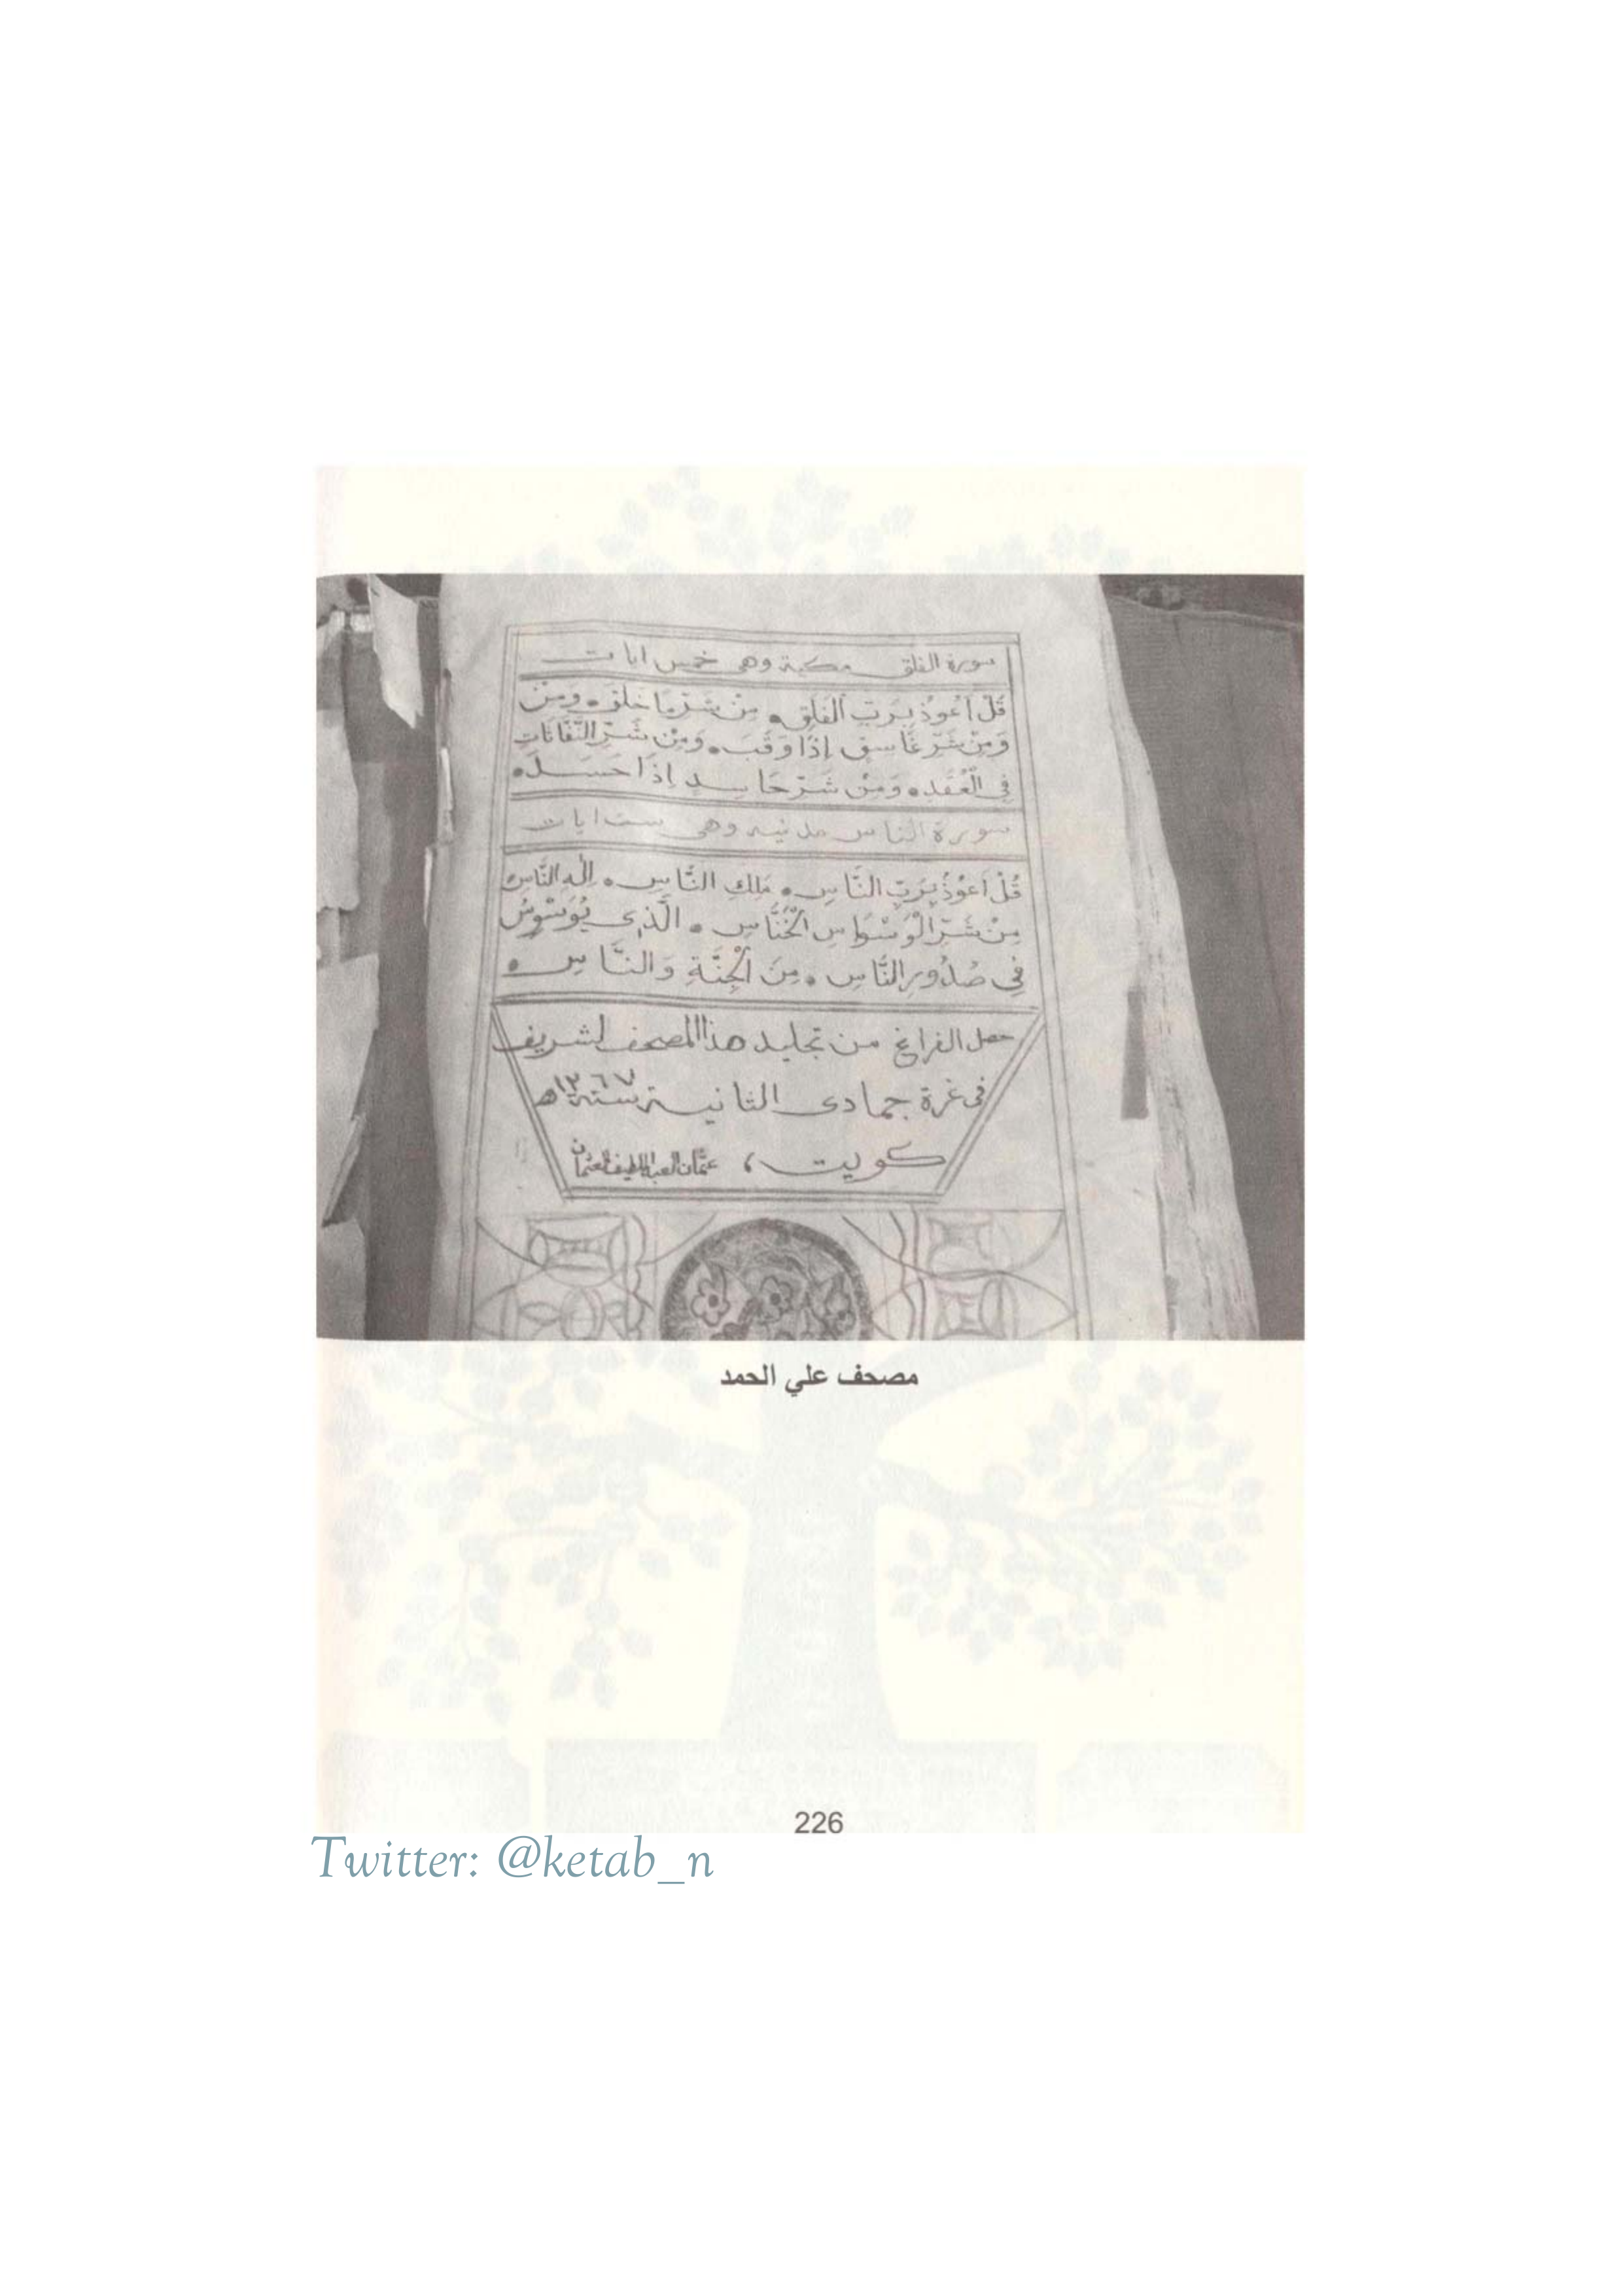 سورة الفلق مكية وهي خمس ايات
قُلْ اَعُوذُ بِرَبِّ الْفَلَقِ • مِنْ شَرِّ مَا خَلَقَ • وَمِنْ
وَمِنْ شَرِّ غَاسِقٍ اِذَا وَقَبَ • وَمِنْ شَرِّ النَّفَّاثَاتِ
فِي الْعُقَدِ • وَمِنْ شَرِّ حَاسِدٍ اِذَا حَسَدَ •
سورة الناس مدنيه وهى ست ايات
قُلْ اَعُوْذُ بِرَبِّ النَّاسِ • مَلِكِ النَّاسِ • اِلٰهِ النَّاسِ
مِنْ شَرِّ الْوَسْوَاسِ الْخَنَّاسِ • الَّذِى يُوَسْوِسُ
فِي صُدُورِ النَّاسِ • مِنَ الْجِنَّةِ وَالنَّاسِ •
حصل الفراغ من تجليد هذا المصحف الشريف
فى غرة جمادى الثانية سنة ١٣٦٧ھ
كويت، عثمان العبد اللطيف العثمان
مصحف علي الحمد
226
Twitter: @ketab_n